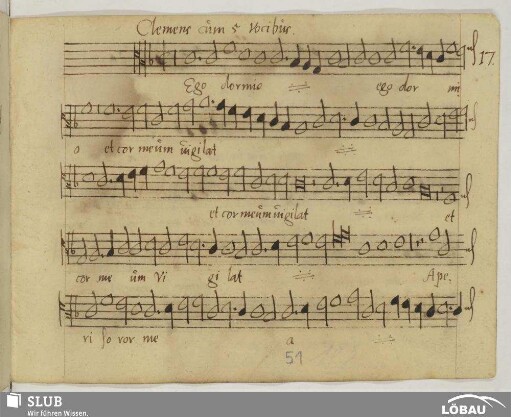 Clemens cum 5 vocibus.
17.
Ego dormio ego dor mi
o et cor meum vigilat
et cor meum vigilat et
cor me um vi gi lat Ape,
ri so ror me a
51
SLUB
Wir führen Wissen.
LÖBAU